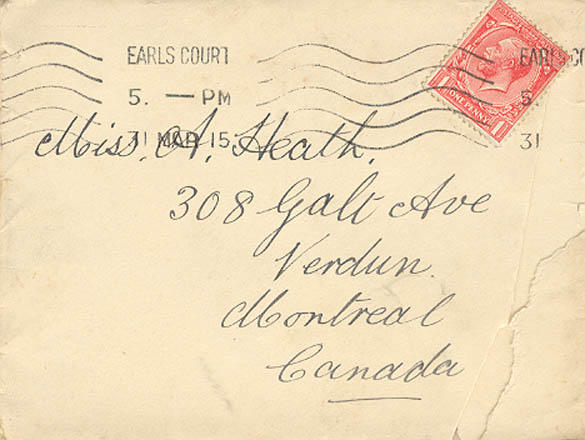 EARLS COURT
5. — PM
31 MAR 15
EARLS CO
5
31
ONE PENNY
Miss. A. Heath.
308 Galt Ave
Verdun.
Montreal
Canada